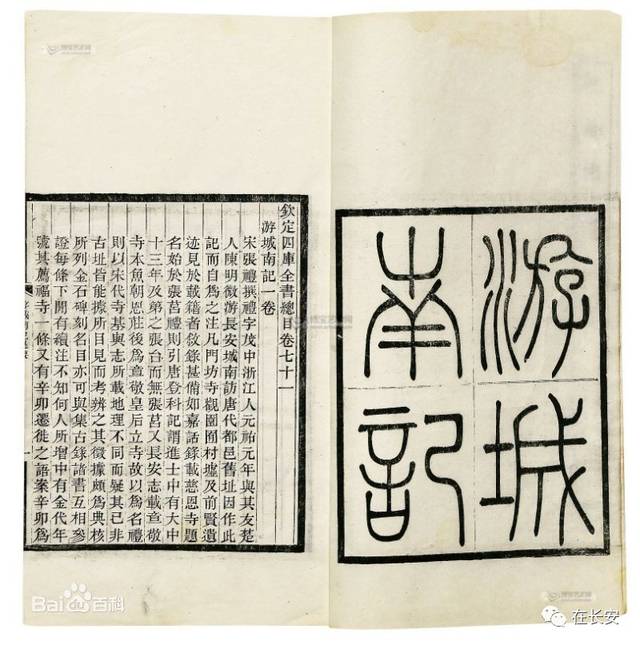 游城
南記
欽定四庫全書總目卷七十一
游城南記一卷
宋張禮撰禮字茂中浙江人元祐元年與其友楚
人陳明微游長安城南訪唐代都邑舊址因作此
記而自爲之注凡門坊寺觀園囿村墟及前賢遺
迹見於載籍者敘錄甚備如嘉話錄載慈恩寺題
名始於張莒禮則引唐登科記謂進士中有大中
十三年及第之張台而無張莒又長安志載章敬
寺本魚朝恩莊後爲章敬皇后立寺故以爲名禮
則以宋代寺基與志所載地理不同而疑其已非
古址皆能據所目見而考辨之其徵據頗爲典核
所列金石碑刻名目亦可與集古錄諸書互相參
證每條下閒有續注不知何人所增中有金代年
號其薦福寺一條又有辛卯遷徙之語案辛卯爲
一
Bai百科
在长安